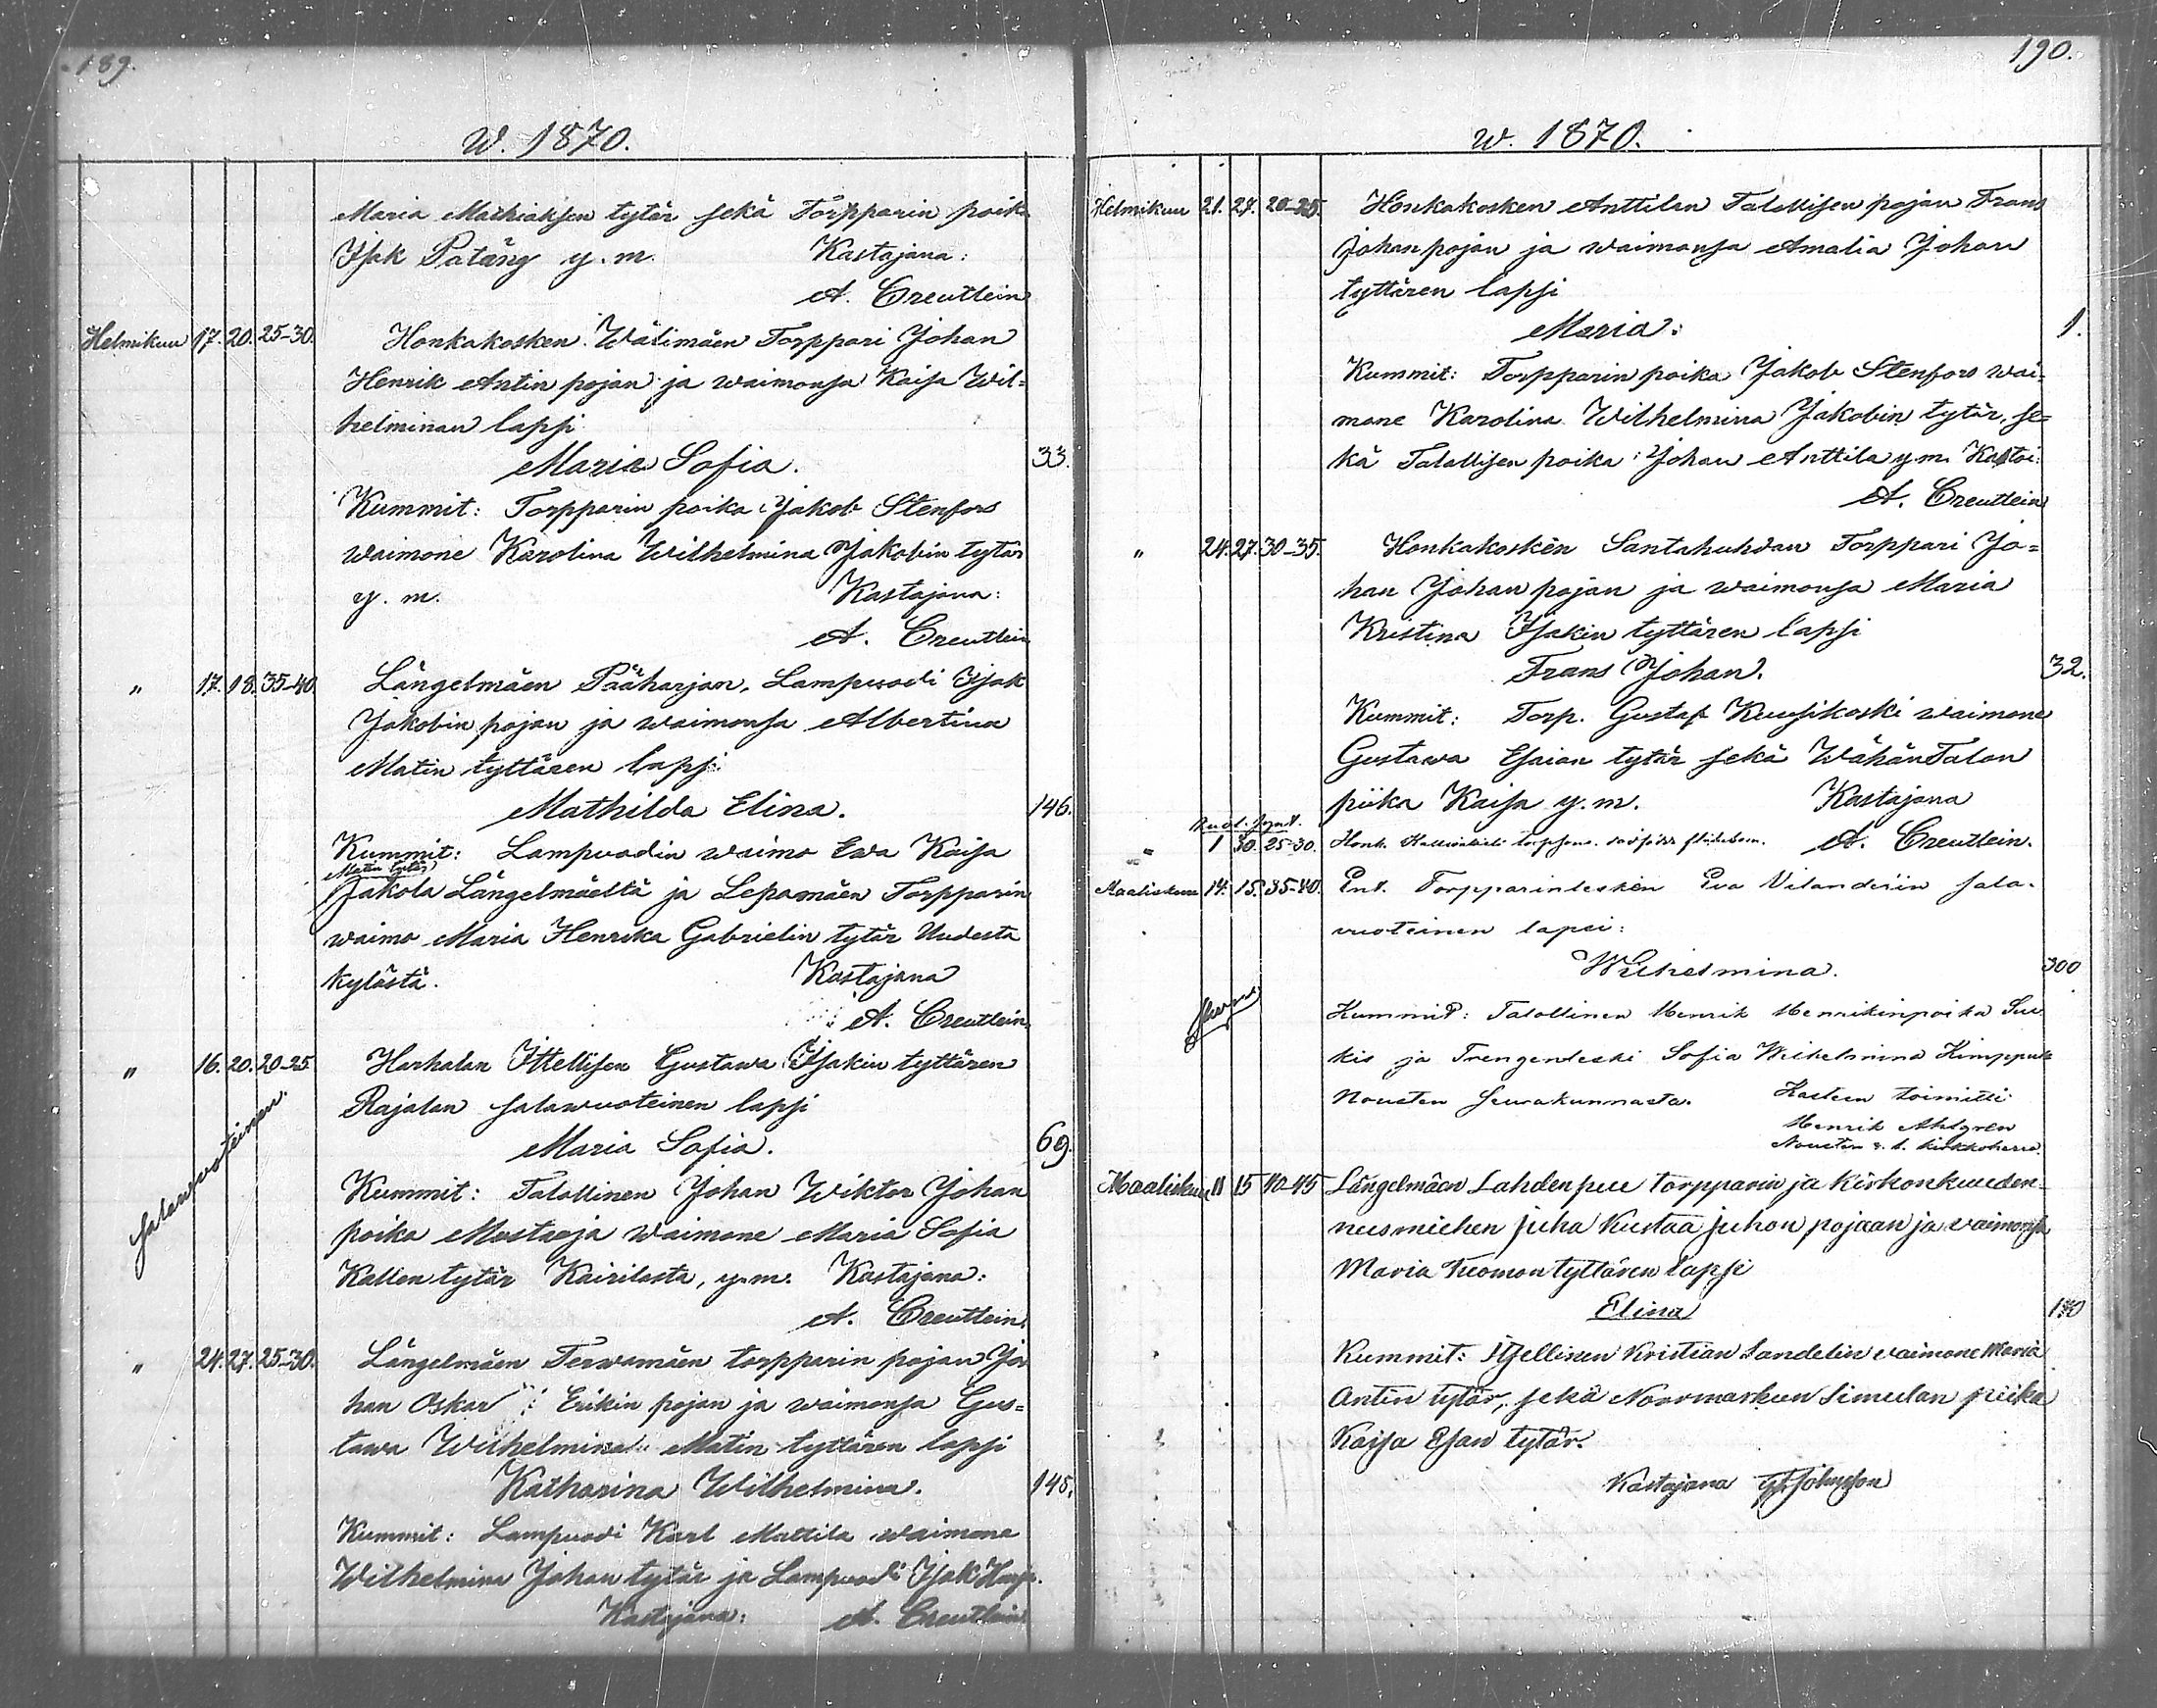 189.
W. 1870.
Maria Mathiaksen tytär sekä Torpparin poika
Isak Patäng y. m. Kastajana:
A. Creutlein
Helmikuu 17. 20. 25-30. Honkakosken Wälimäen Torppari Johan
Henrik Antin pojan ja waimonsa Kaisa Wil=
helminan lapsi
Maria Sofia. 33.
Kummit: Torpparin poika Jakob Stenfors
waimone Karolina Wilhelmina Jakobin tytär
y. m. Kastajana:
A. Creutlein
" 17. 18. 35-40. Längelmäen Pääharjan, Lampuodi Isak
Jakobin pojan ja waimonsa Albertina
Matin tyttären lapsi
Mathilda Elina. 146.
Kummit: Lampuodin waimo Ewa Kaisa
Matin tytär
Jakola Längelmäeltä ja Lepamäen Torpparin
waimo Maria Henrika Gabrielin tytär Uudesta
kylästä. Kastajana
A. Creutlein
" 16. 20. 20-25 Harhalan Ittellisen Gustawa Isakin tyttären
Rajalan salawuoteinen lapsi
Salawuoteinen.
Maria Sofia. 69.
Kummit: Talollinen Johan Wiktor Johan
poika Mustaoja waimone Maria Sofia
Kallen tytär Kairilasta, y.m. Kastajana:
A. Creutlein
" 24. 27. 25-30. Längelmäen Terwamäen torpparin pojan Jo
han Oskar Erikin pojan ja waimonsa Gus=
tawa Wilhelmina Matin tyttären lapsi
Katharina Wilhelmina. 145.
Kummit: Lampuodi Karl Mattila waimone
Wilhelmina Johan tytär ja Lampuodi Isak Harju.
Kastajana: A. Creutlein
190.
w. 1870.
Helmikuu 21. 27. 20-25. Honkakosken Anttilan Talollisen pojan Frans
Johanpojan ja waimonsa Amalia Johan
tyttären lapsi
Maria: 1.
Kummit: Torpparin poika Jakob Stenfors wai=
mone Karolina Wilhelmina Jakobin tytär, se=
kä Talollisen poika Johan Anttila y.m. Kastoi:
A. Creutlein
" 24. 27. 30-35. Honkakosken Santahuhdan Torppari Jo=
han Johan pojan ja waimonsa Maria
Kristina Isakin tyttären lapsi
Frans Johan. 32.
Kummit: Torp. Gustaf Kuusikoski waimone
Gustawa Esaian tytär sekä WähänTalon
piika Kaisa y. m. Kastajana
" 1 30. 25-30. Honk. A. Creutlein.
Maaliskuu 14. 15. 35-40. Ent. Torpparinlesken Eva Vilanderin sala-
vuoteinen lapsi:
Wilhelmina. 300
Kummit: Talollinen Henrik Henrikinpoika Suu
kis ja Trengenleski Sofia Wilhelmina Kimppu
Nousten Seurakunnasta. Kasteen toimitti
Henrik Ahlgren
Nousten kirkkoherra.
Maaliskuu 11 15 40-45 Längelmäen Lahdenpee torpparin ja Kirkonkuuden-
nusmiehen Juha Kustaa Juhon pojaan ja vaimonsa
Maria Tuomon tyttären lapsi
Elina
Kummit: Itsellinen Kristian Sandelin waimone Maria
Antin tytär, sekä Noormarkun Simulan piika
Kaisa Esan tytär.
Kastajana